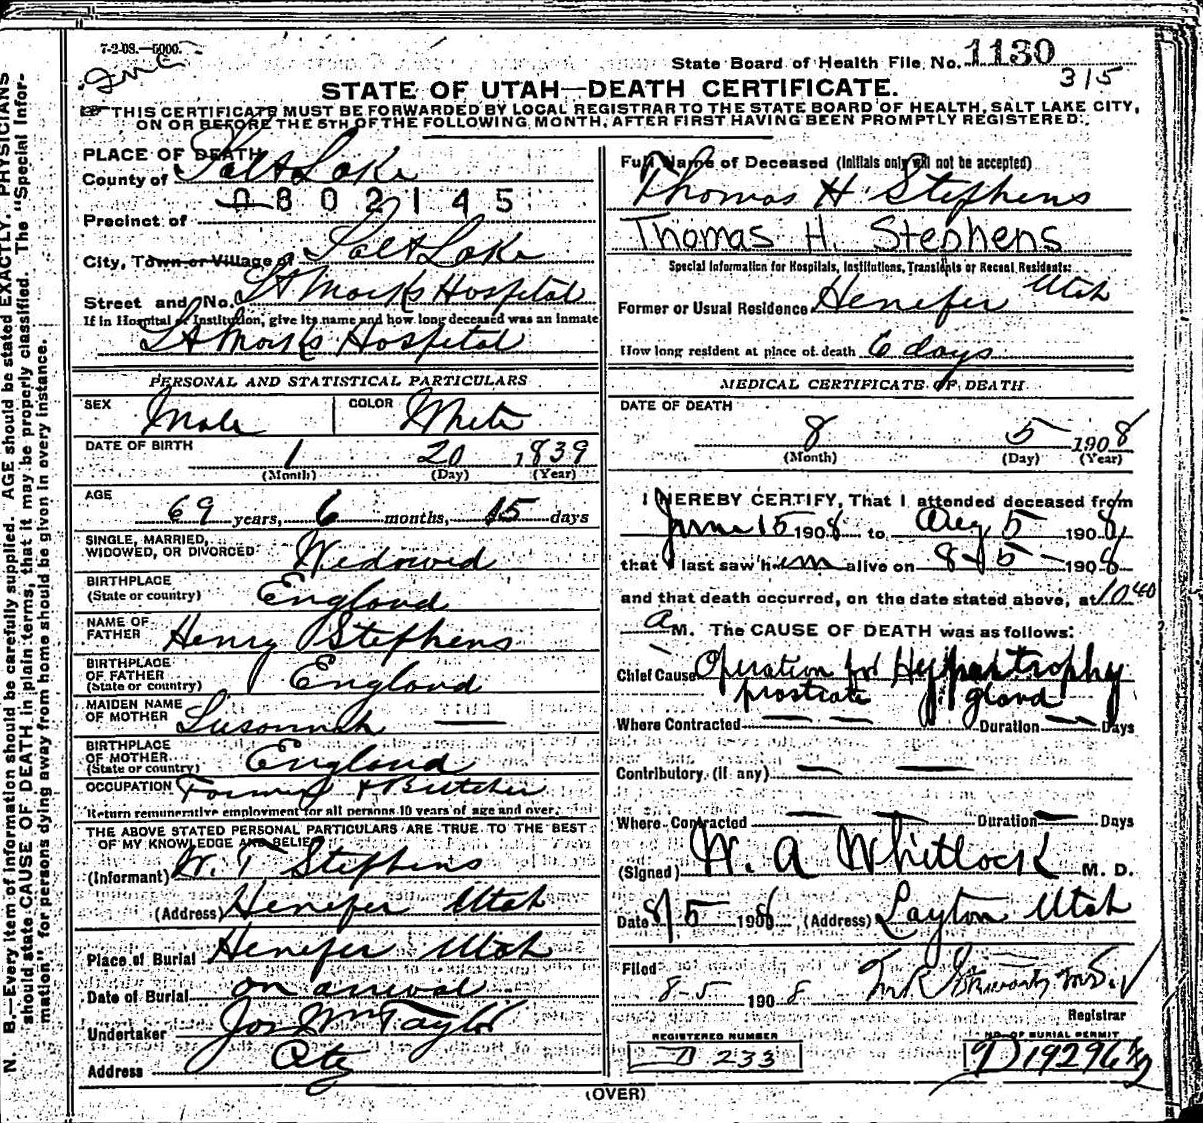 7-2-08.—5000.
State Board of Health File No. 1130
315
STATE OF UTAH—DEATH CERTIFICATE.
THIS CERTIFICATE MUST BE FORWARDED BY LOCAL REGISTRAR TO THE STATE BOARD OF HEALTH, SALT LAKE CITY,
ON OR BEFORE THE 5TH OF THE FOLLOWING MONTH, AFTER FIRST HAVING BEEN PROMPTLY REGISTERED.
N. B.—Every item of information should be carefully supplied. AGE should be stated EXACTLY. PHYSICIANS
should state CAUSE OF DEATH in plain terms, that it may be properly classified. The "Special Infor-
mation" for persons dying away from home should be given in every instance.
PLACE OF DEATH
County of Salt Lake
0802145
Precinct of
City, Town or Village of Salt Lake
Street and No. St Marks Hospital
If in Hospital or Institution, give its name and how long deceased was an inmate
St Marks Hospital
PERSONAL AND STATISTICAL PARTICULARS
SEX Male COLOR White
DATE OF BIRTH 1 20 1839
(Month) (Day) (Year)
AGE
69 years, 6 months, 15 days
SINGLE, MARRIED,
WIDOWED, OR DIVORCED Widowed
BIRTHPLACE
(State or country) England
NAME OF
FATHER Henry Stephens
BIRTHPLACE
OF FATHER
(State or country) England
MAIDEN NAME
OF MOTHER Susannah —
BIRTHPLACE
OF MOTHER
(State or country) England
OCCUPATION Farmer & Butcher
Return remunerative employment for all persons 10 years of age and over.
THE ABOVE STATED PERSONAL PARTICULARS ARE TRUE TO THE BEST
OF MY KNOWLEDGE AND BELIEF
(Informant) W. T Stephens
(Address) Henefer Utah
Place of Burial Henefer Utah
Date of Burial on arrival
Undertaker Jos Wm Taylor
Address City
Full Name of Deceased (Initials only will not be accepted)
Thomas H Stephens
Thomas H. Stephens
Special Information for Hospitals, Institutions, Transients or Recent Residents:
Former or Usual Residence Henefer Utah
How long resident at place of death 6 days
MEDICAL CERTIFICATE OF DEATH
DATE OF DEATH
8 5 1908
(Month) (Day) (Year)
I HEREBY CERTIFY, That I attended deceased from
June 15 1908 to Aug 5 1908,
that I last saw him alive on 8-5- 1908
and that death occurred, on the date stated above, at 10 40
a M. The CAUSE OF DEATH was as follows:
Chief Cause Operation for Hypertrophy
prostrate gland
Where Contracted — — Duration — Days
Contributory (if any) — —
Where Contracted — — Duration — Days
(Signed) W. A Whitlock M. D.
Date 8/5 1908 (Address) Layton Utah
Filed
8-5 1908
Registrar
REGISTERED NUMBER
D 233
NO. OF BURIAL PERMIT
D19296
(OVER)